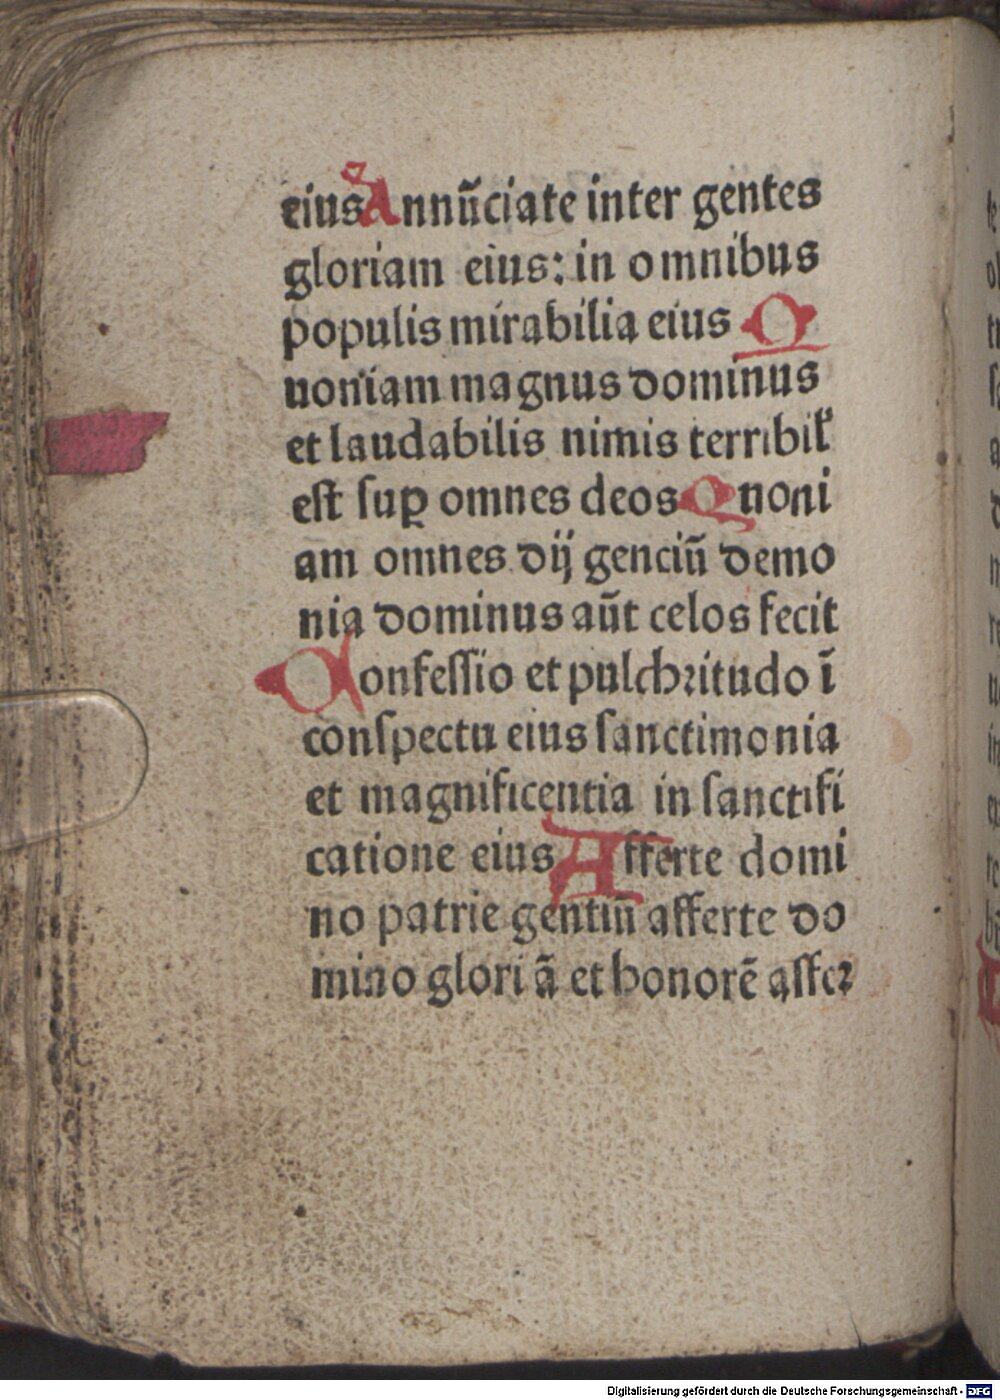 eius Annūciate inter gentes
gloriam eius: in omnibus
populis mirabilia eius Q
uoniam magnus dominus
et laudabilis nimis terribilꝭ
est suꝑ omnes deos Quoni
am omnes dij genciū demo
nia dominus aūt celos fecit
Confessio et pulchritudo ī
conspectu eius sanctimonia
et magnificentia in sanctifi
catione eius Afferte domi
no patrie gentiū afferte do
mino gloriā et honorē affer
Digitalisierung gefördert durch die Deutsche Forschungsgemeinschaft - DFG